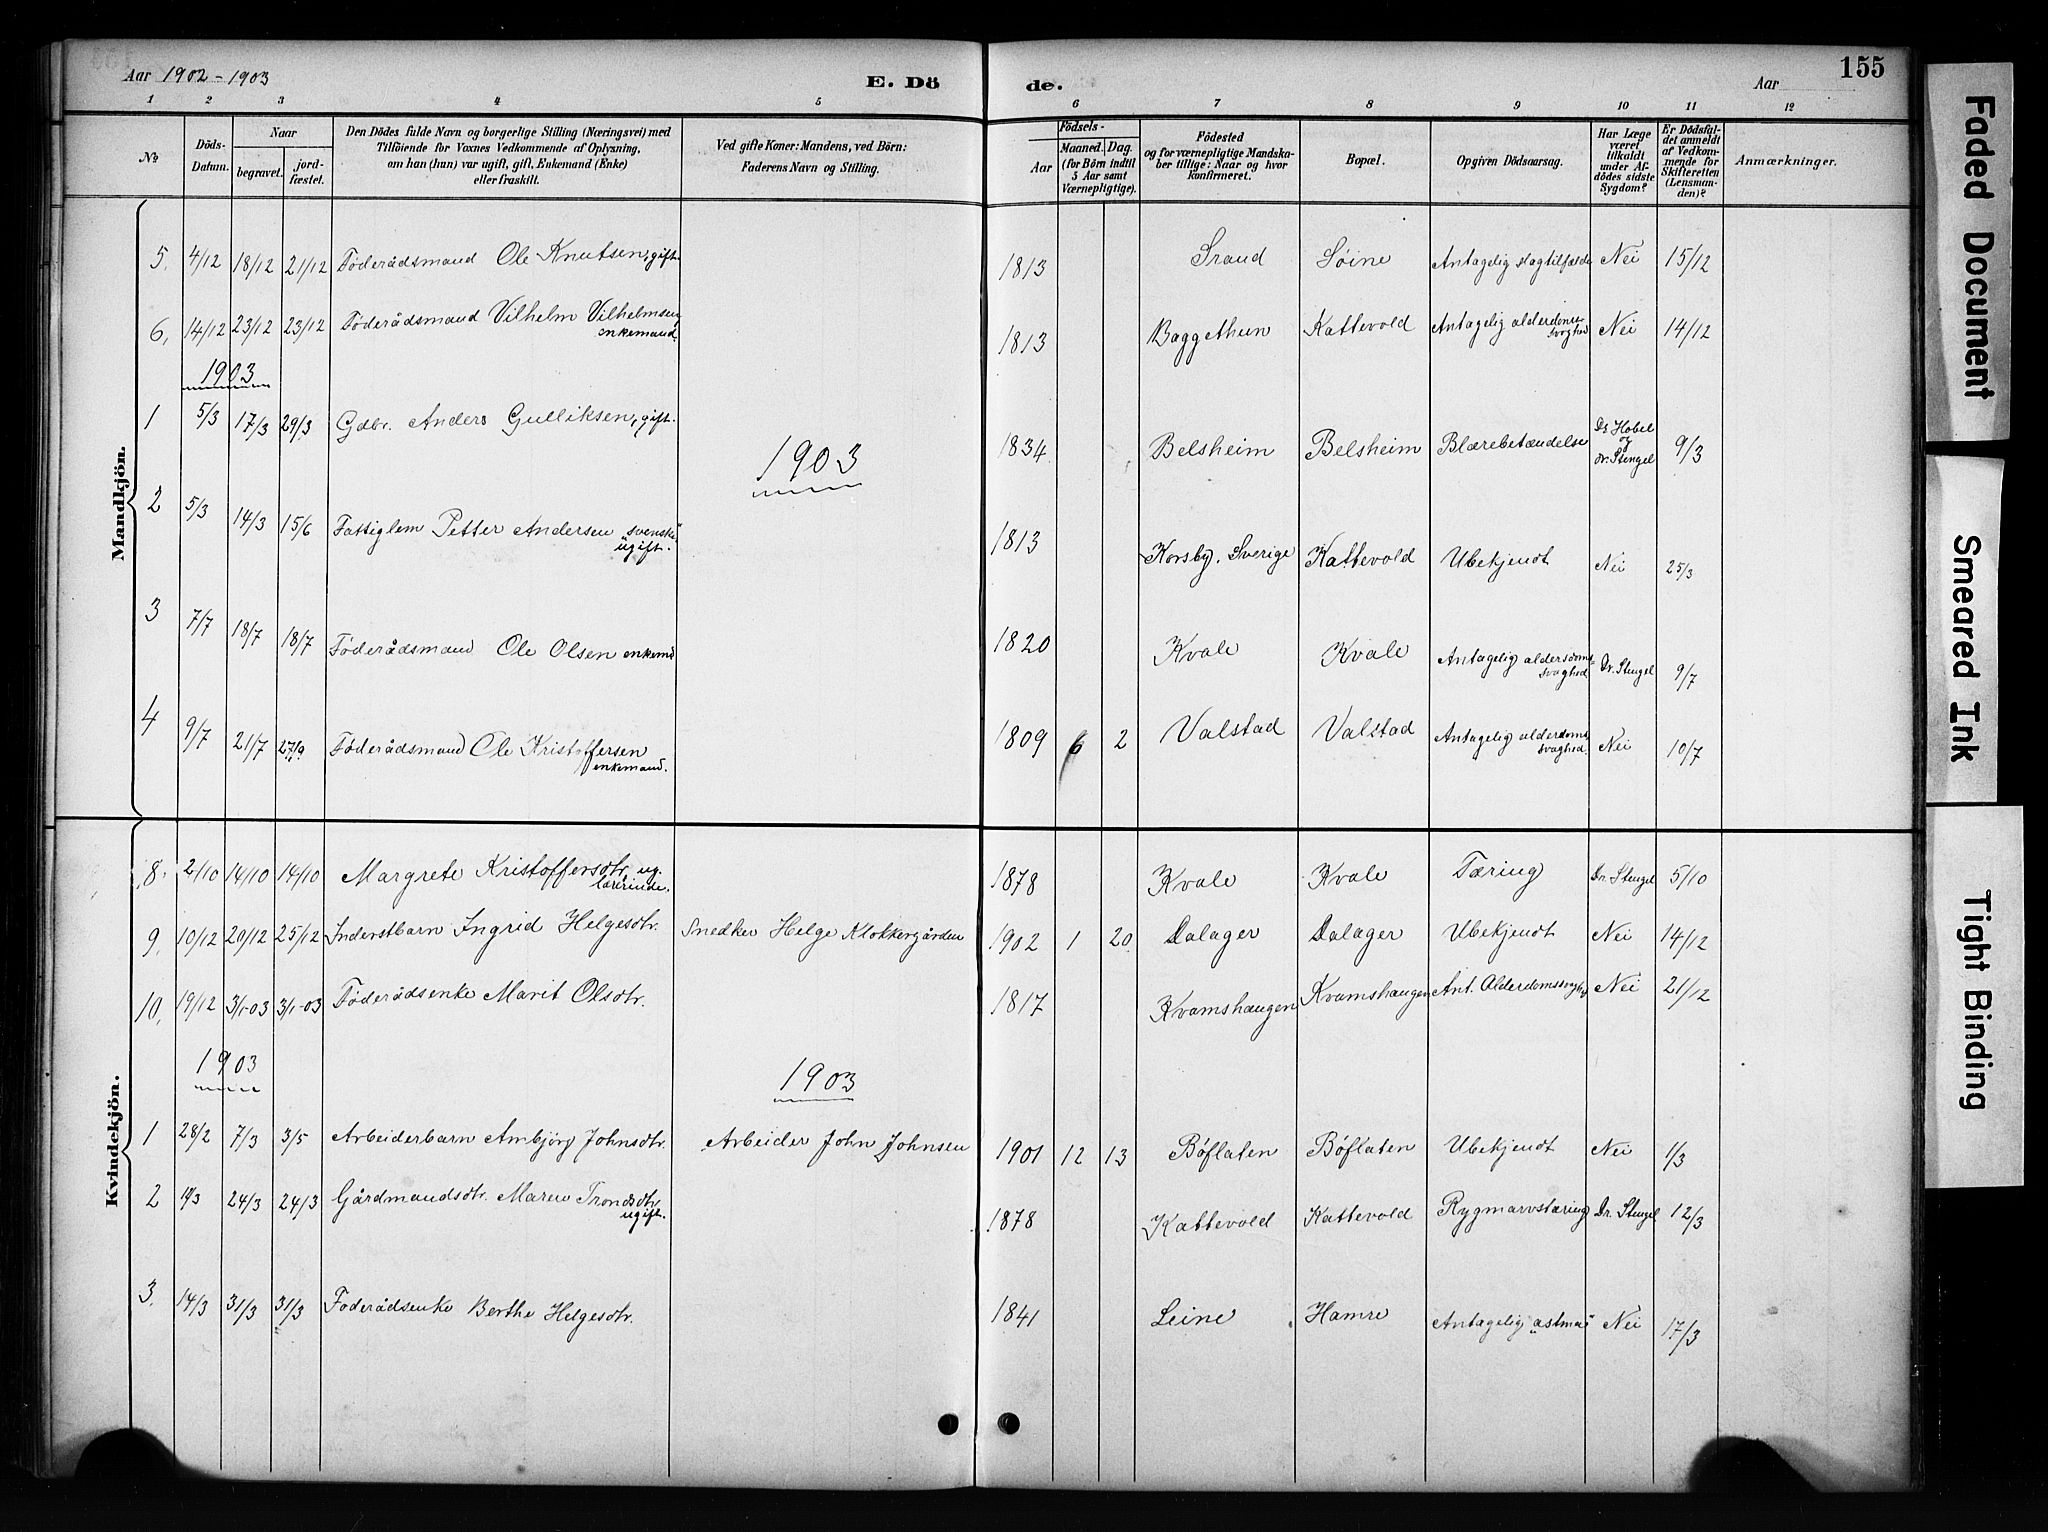 Aar 1902-1903
E. Dö
de.
Aar
155
1 2 3 4 5 6 7 8 9 10 11 12
No
Döds-Datum.
Naar
begravet.
jord-fæstet.
Den Dödes fulde Navn og borgerlige Stilling (Næringsvei) med
Tilföiende for Voxnes Vedkommende af Oplysning,
om han (hun) var ugift, gift, Enkemand (Enke)
eller fraskilt.
Ved gifte Koner: Mandens, ved Börn:
Faderens Navn og Stilling.
Födsels-
Aar
Maaned. Dag.
(for Börn indtil
5 Aar samt
Værnepligtige).
Födested
og for værnepligtige Mandska-
ber tillige: Naar og hvor
konfirmeret.
Bopæl.
Opgiven Dödsaarsag.
Har Læge
været
tilkaldt
under Af-
dödes sidste
Sygdom?
Er Dödsfal-
det anmeldt
af Vedkom-
mende for
Skifteretten
(Lensman-
den)?
Anmærkninger.
Mandkjön.
5. 4/12 18/12 21/12 Föderådsmand Ole Knutsen, gift. 1813 Strand Söine Antagelig slagtilfælde Nei 15/12
6. 14/12 23/12 23/12 Föderådsmand Vilhelm Vilhelmsen, enkemand. 1813 Baggethun Kattevold Antagelig alderdoms-svaghed Nei 14/12
1903
1903
1 5/3 17/3 29/3 Gdbr. Anders Gulliksen, gift. 1834 Belsheim Belsheim Blærebetændelse Dr. Hobel og Dr. Stengel 9/3
2 5/3 14/3 15/6 Fattiglem Petter Andersen "svenske" ugift. 1813 Korsby, Sverige Kattevold Ubekjendt Nei 25/3
3 7/7 18/7 18/7 Föderådsmand Ole Olsen enkemd 1820 Kvale Kvale Antagelig aldersdoms-svaghed. Dr. Stengel 9/7
4 9/7 21/7 27/9 Föderådsmand Ole Kristoffersen enkemand. 1809 6 2 Valstad Valstad Antagelig alderdoms svaghed. Nei 10/7
Kvindekjön.
8. 2/10 14/10 14/10 Margrete Kristoffersdtr. ug. lærerinde. 1878 Kvale Kvale Tæring Dr. Stengel 5/10
9. 10/12 20/12 25/12 Inderstbarn Ingrid Helgesdtr. Snedker Helge Klokkergården 1902 1 20 Dalager Dalager Ubekjendt Nei 14/12
10. 19/12 3/1-03 3/1-03 Föderådsenke Marit Olsdtr. 1817 Kvamshaugen Kvamshaugen Ant. Alderdomssvaghed Nei 21/12
1903
1903
1 28/2 7/3 3/5 Arbeiderbarn Ambjörg Johnsdtr. Arbeider John Johnsen 1901 12 13 Böflaten Böflaten Ubekjendt Nei 1/3
2 24/3 24/3 Gårdmandsdtr. Maren Trondsdtr. ugift. 1878 Kattevold Kattevold Rygmarvstæring Dr. Stengel 12/3
3. 14/3 31/3 31/3 Föderådsenke Berthe Helgesdtr. 1841 Leine Hamre Antagelig "astma" Nei 17/3
Faded Document
Smeared Ink
Tight Binding